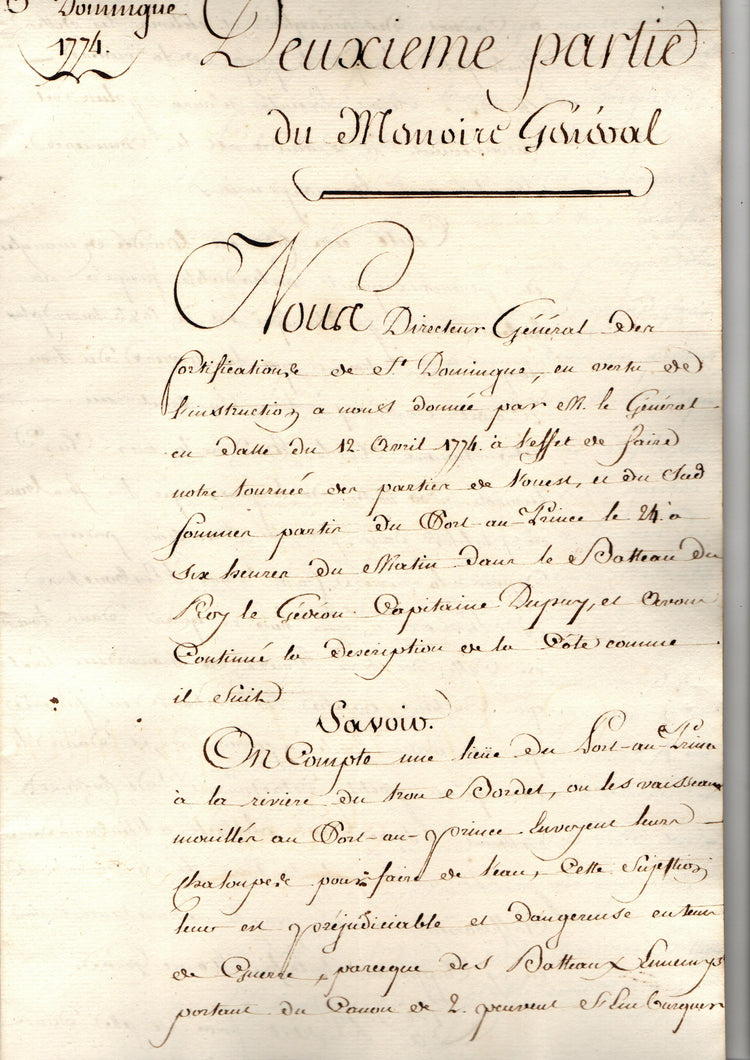 St Domingue
1774.
Deuxieme partie
du Memoire Général
Nous Directeur Général des
fortifications de St Domingue, en vertu de
l'instruction a nous donnée par M. le Général
en datte du 12 Avril 1774. à l'effet de faire
notre tournée des parties de l'ouest, et du Sud
sommes partis du Port-au-Prince le 24. à
six heures du Matin dans le Batteau du
Roy le Gédéon Capitaine Dupuy, et avons
Continué la description de la Côte comme
il suit
Savoir.
On Compte une lieüe du Port-au-Prince
à la riviere du trou Bordet, ou les vaisseaux
mouillés au Port-au-prince Envoyent leurs
chaloupes pour faire de l'eau, Cette Sujettion
leur est préjudiciable et dangereuse en tems
de Guerre, parceque des Batteaux Ennemys
portant du Canon de 2. peuvent S'Embusquer